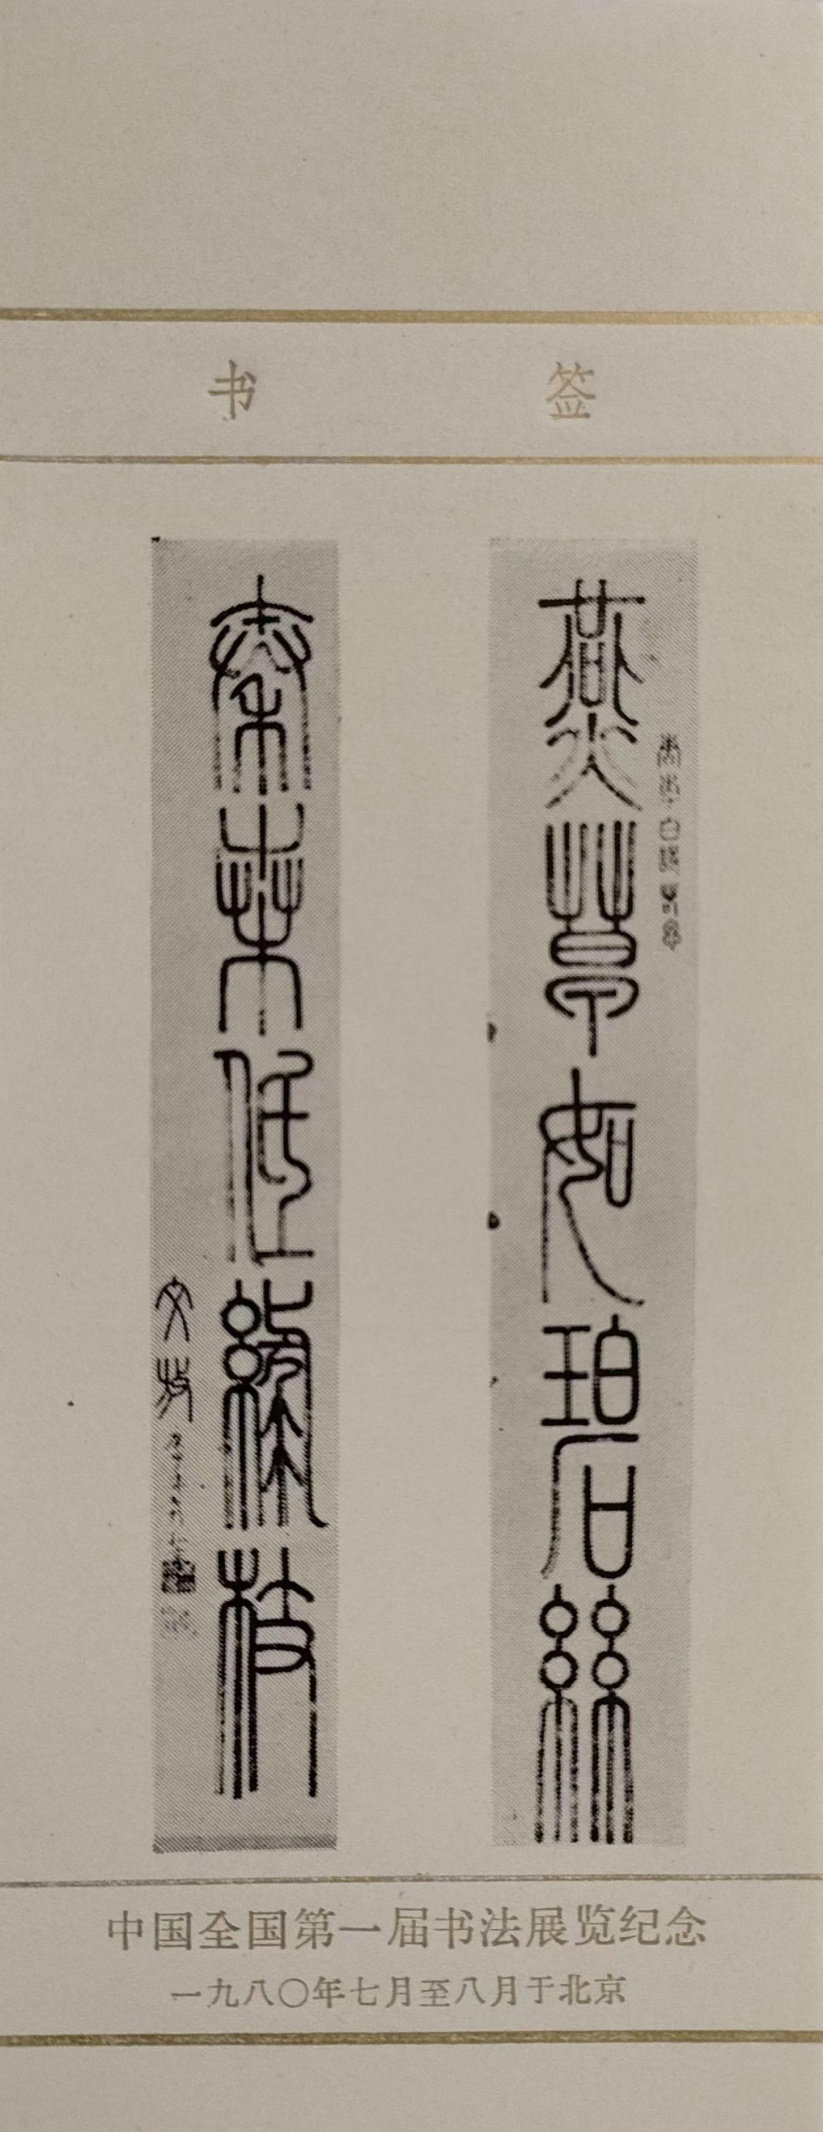 书签
燕草如碧丝
秦桑低绿枝
中国全国第一届书法展览纪念
一九八〇年七月至八月于北京